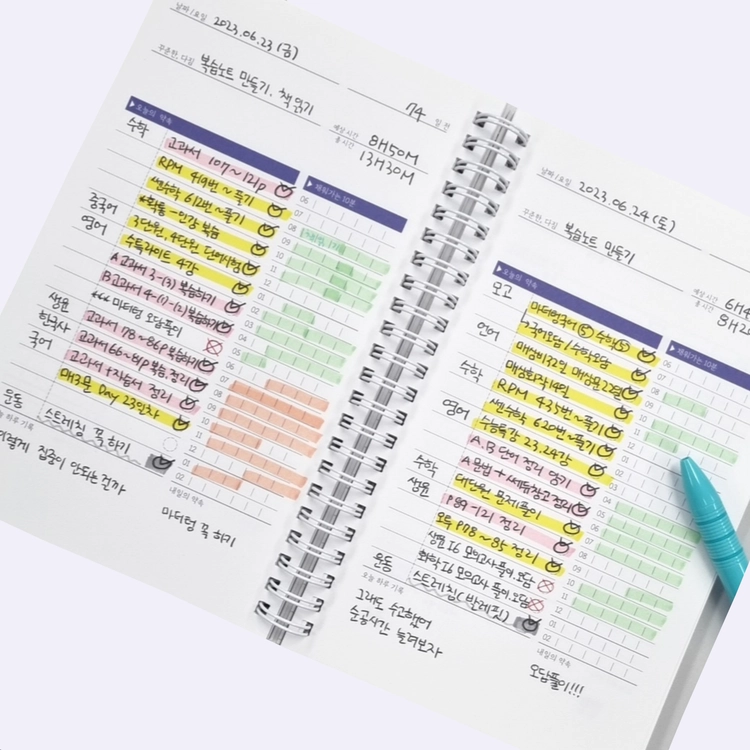 날짜/요일 2023.06.23(금)
꾸준한, 다짐 복습노트 만들기. 책 읽기
74 일 전
예상 시간 8H50M
총 시간 13H30M
▶오늘의 약속
▶채워가는 10분
수학 교과서 107~121p
RPM 419번~풀기
쎈수학 612번~풀기
중국어 3단원, 4단원 단어시험
영어 수특라이트 4강
A교과서 3-(3) 복습하기
B교과서 4-(1)-(2)복습하기
마더텅 오답풀이
생윤 교과서 178~86p 복습하기
한국사 교과서 66~81p 복습 정리
국어 교과서+자습서 정리
매3문 Day 23일차
운동 스트레칭 꼭 하기
06
07
08
09
10
11
12
01
02
03
04
05
06
07
08
09
10
11
12
01
02
하루 기록
이렇게 집중이 안되는 걸까
내일의 약속
마더텅 꼭 하기
날짜/요일 2023.06.24(토)
꾸준한, 다짐 복습노트 만들기
예상 시간 6H4
총 시간 8H2
▶오늘의 약속
▶채워가는 10분
모고 마더텅국어⑤ 수학⑤
국어오답/수학오답
언어 매삼비32일 매삼문22일
매삼화작14일
수학 RPM 435번~풀기
쎈수학 620번~풀기
영어 수능특강 23.24강
A.B 단어 정리 암기
수학 대단원 문제풀이
생윤 P89-121 정리
P78~85 정리
생윤 16 모의고사 풀이.오답
화학 16 모의고사 풀이.오답
운동 스트레칭(반레핏)
06
07
08
09
10
11
12
04
05
06
07
08
09
10
11
12
01
02
오늘 하루 기록
그래도 수고했어
순공시간 늘려보자
내일의 약속
오답풀이!!!